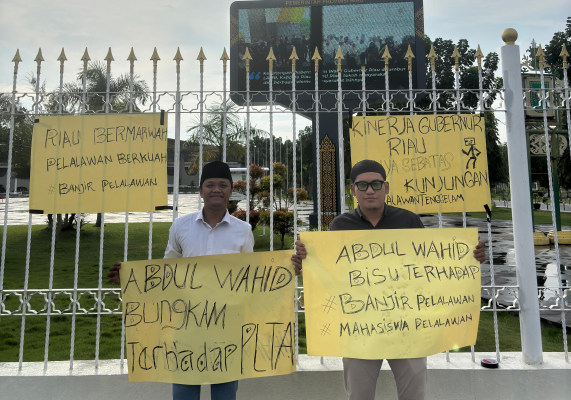 RIAU BERMARWAH
PELALAWAN BERKUAH
# BANJIR PELALAWAN
KINERJA GUBERNUR
RIAU
SEBATAS
KUNJUNGAN
ABDUL WAHID
BUNGKAM
TERHADAP PLTA
ABDUL WAHID
BISU TERHADAP
# BANJIR PELALAWAN
# MAHASISWA PELALAWAN